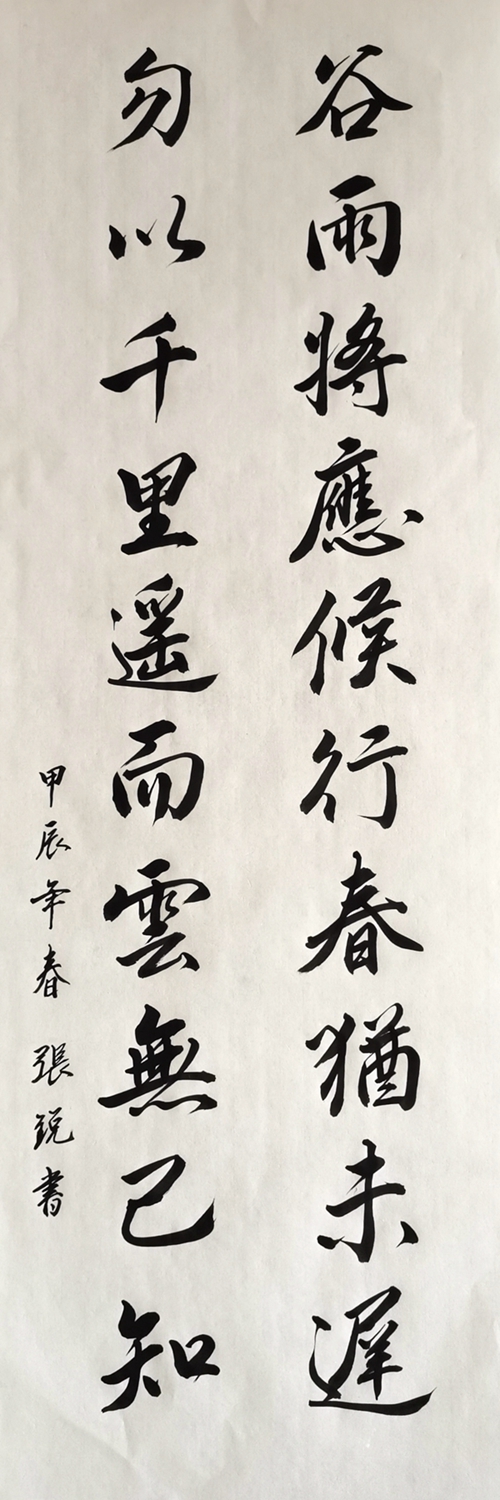 谷雨將應候行春猶未遲
勿以千里遥而雲無己知
甲辰年春 張銳書